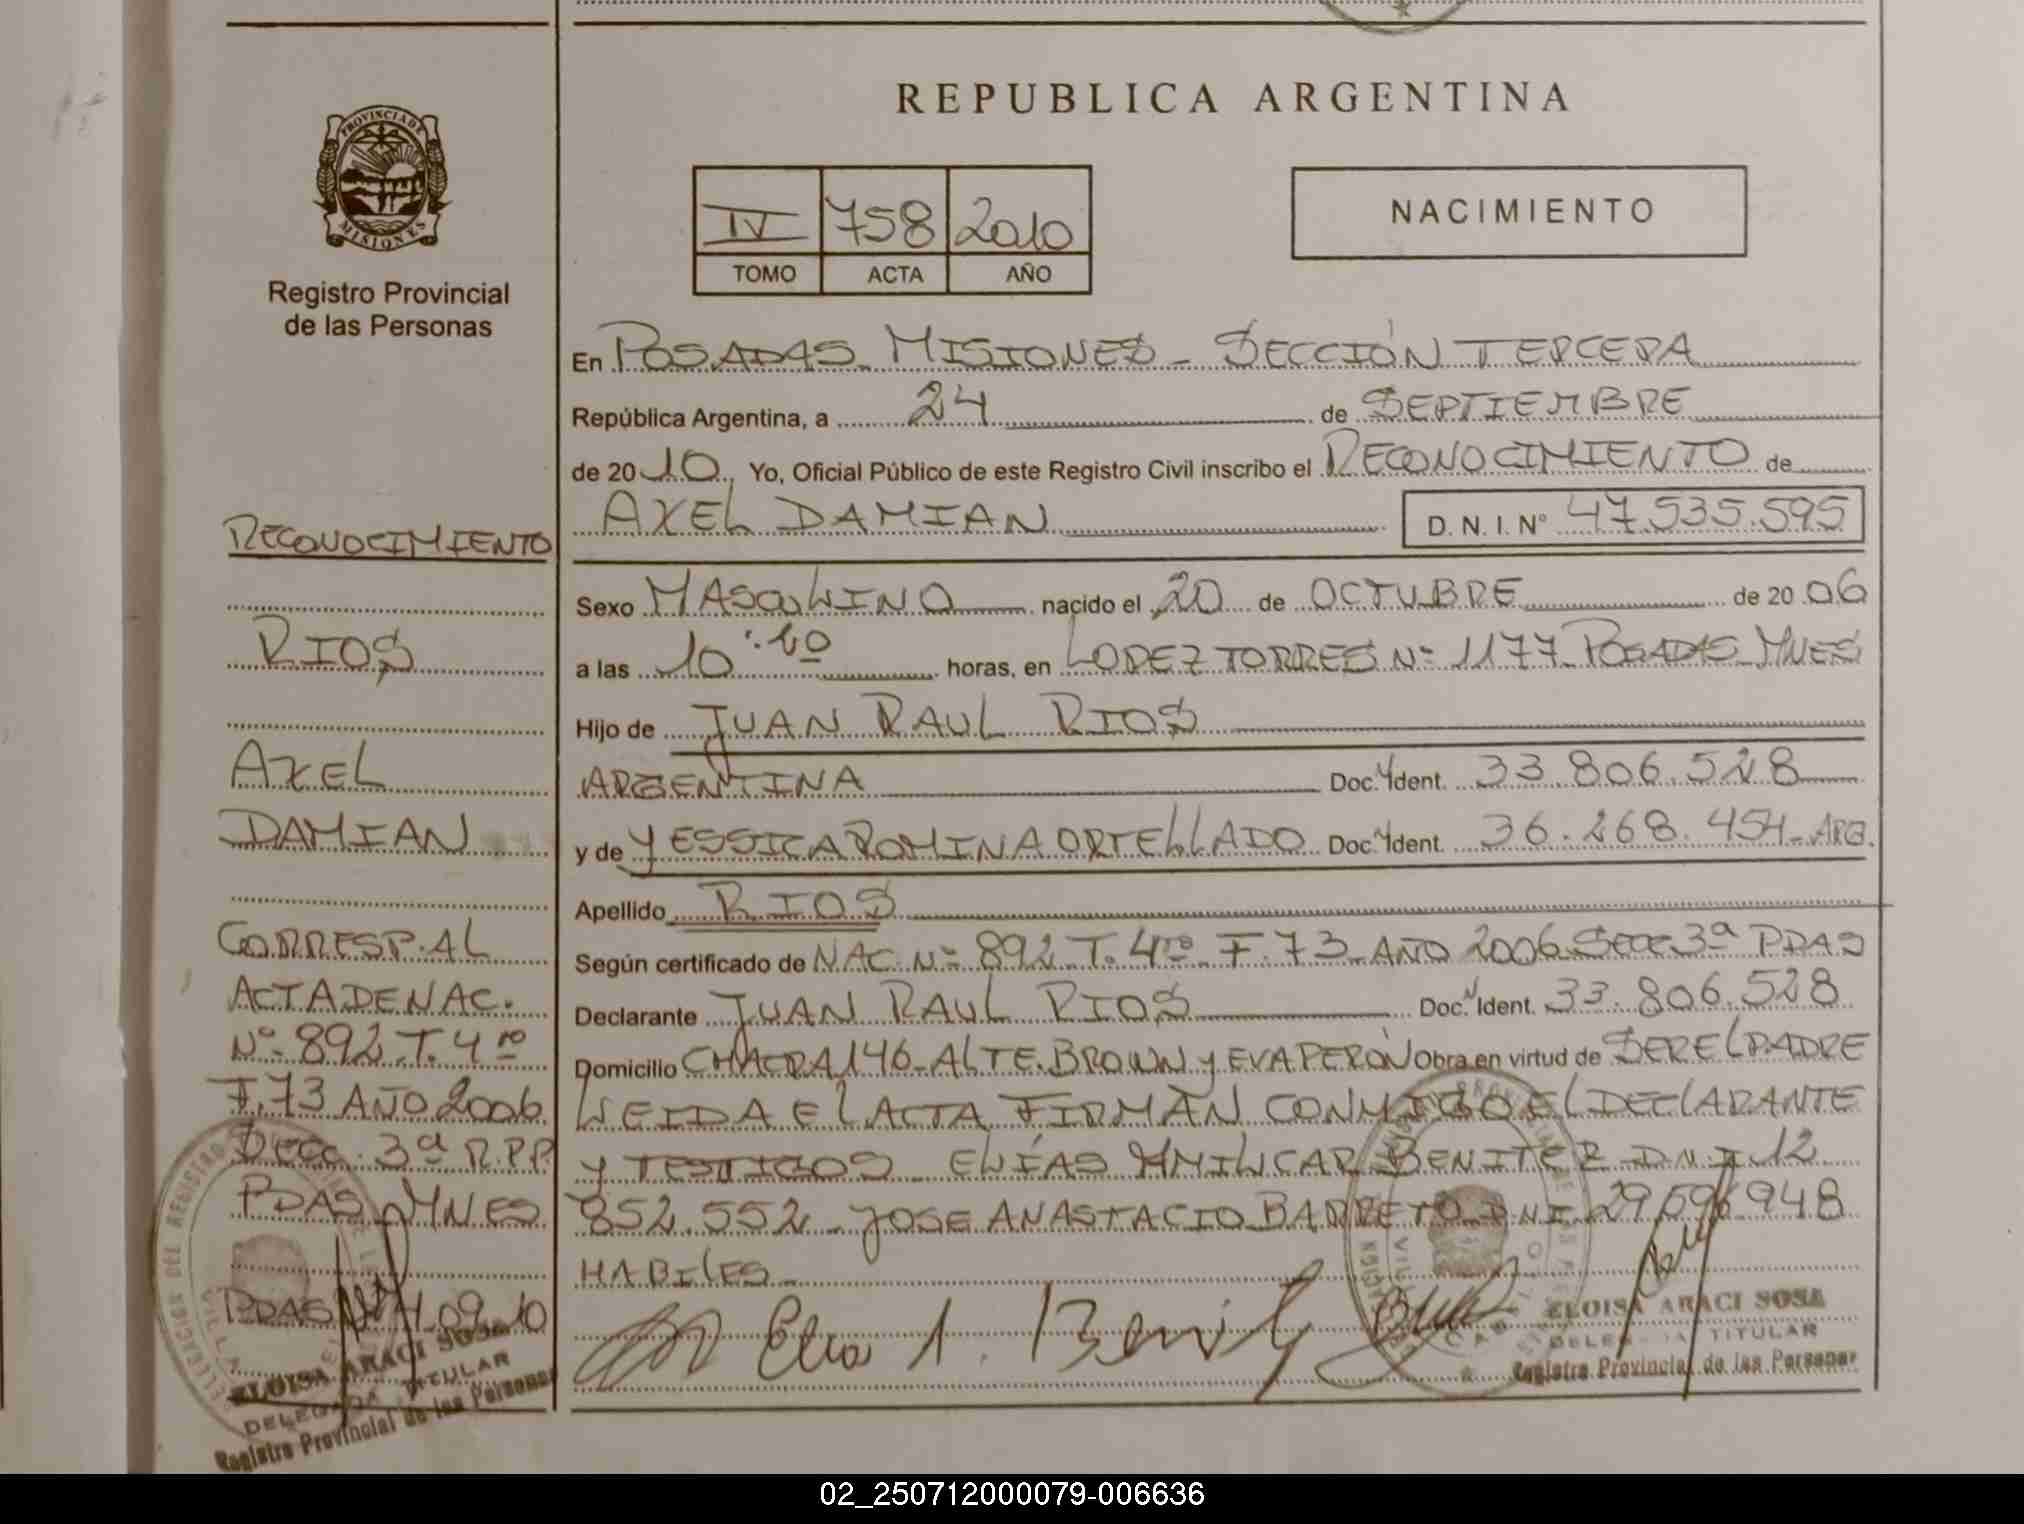 PROVINCIA DE
MISIONES
Registro Provincial
de las Personas
REPUBLICA ARGENTINA
IV 758 2010
TOMO ACTA AÑO
NACIMIENTO
En POSADAS MISIONES - SECCIÓN TERCERA
República Argentina, a 24 de SEPTIEMBRE
de 2010, Yo, Oficial Público de este Registro Civil inscribo el RECONOCIMIENTO de
AXEL DAMIAN D. N. I. N° 47.535.595
Sexo MASCULINO nacido el 20 de OCTUBRE de 2006
a las 10:20 horas, en LOPEZ TORRES N° 1177 POSADAS MNES
Hijo de JUAN RAUL RIOS
ARGENTINA Doc. Ident. 33.806.528
y de YESSICA ROMINA ORTELLADO Doc. Ident. 36.268.454 - ARG.
Apellido RIOS
Según certificado de NAC. N° 892 T. 4to F. 73 AÑO 2006 SECC 3ª PDAS
Declarante JUAN RAUL RIOS Doc. Ident. 33.806.528
Domicilio CHACRA 146 - ALTE. BROWN Y EVA PERÓN Obra en virtud de SER EL PADRE
LEIDA EL ACTA FIRMAN CONMIGO EL DECLARANTE
Y TESTIGOS ELÍAS AMILCAR BENITEZ D.N.I 12
852.552 - JOSE ANASTACIO BARRETO D.N.I 29.596.948
HABILES -
ELOISA ARACI SOSA
DELEGADA TITULAR
Registro Provincial de las Personas
RECONOCIMIENTO
RIOS
AXEL
DAMIAN
CORRESP. AL
ACTA DE NAC.
N° 892 T. 4to
F. 73 AÑO 2006
SECC. 3ª R.P.P.
PDAS MNES
PDAS 24.09.10
ELOISA ARACI SOSA
DELEGADA TITULAR
Registro Provincial de las Personas
02_250712000079-006636